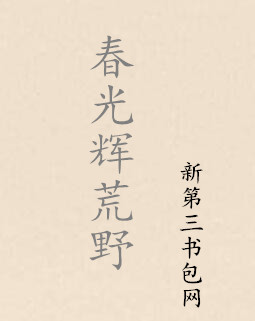 春光辉荒野
新第三书包网